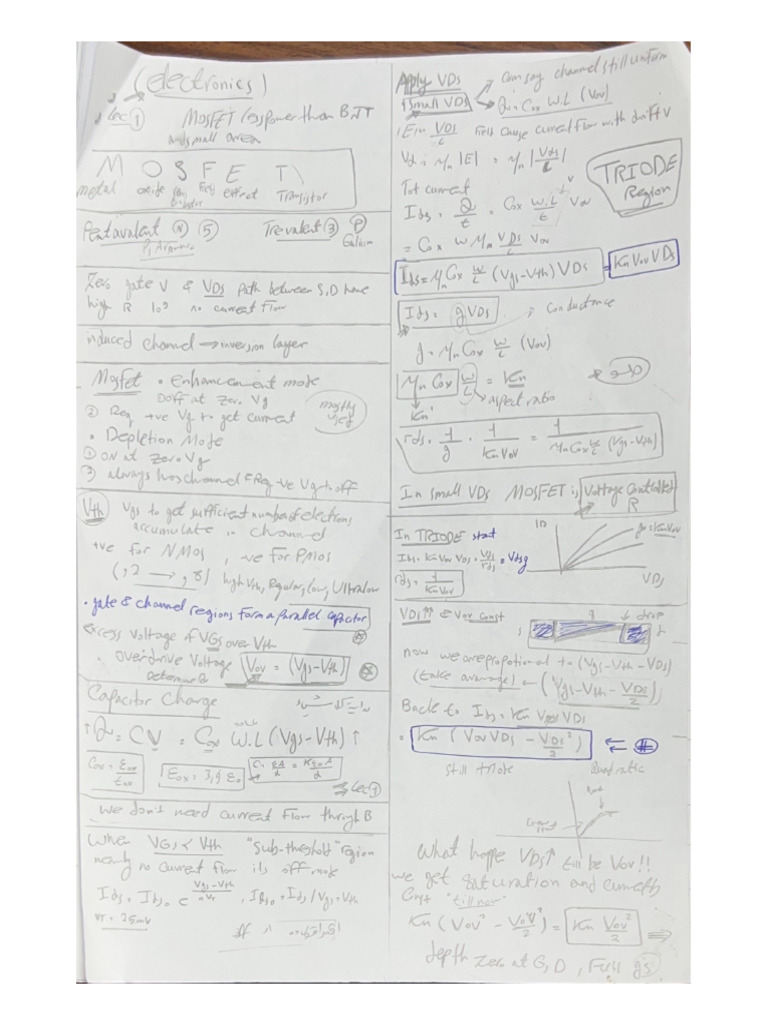 (electronics)
Lec ①
MOSFET less power than BJT
and small area
M O S F E T
metal oxide Semi Field effect Transistor
Pentavalent Ⓝ ⑤ Trevalent ③ Ⓟ
Gallium
Zero gate V & VDS Path between S,D have
high R no current flow
induced channel → inversion layer
Mosfet • enhancement mode
① off at zero Vg
② Req +ve Vg to get current
mostly used
• Depletion Mode
① ON at zero Vg
② always has channel & Req -ve Vg to off
Vth Vgs to get sufficient number of electrons
accumulate in channel
+ve for NMOS , -ve for PMOS
(,2 → ,8) high Vth, Regular, low, Ultralow
• gate & channel regions form a parallel capacitor
excess voltage of VGS over Vth
overdrive Voltage Vov = (Vgs-Vth)
Determine Q
Capacitor Charge
↑Q = CV = Cox W.L (Vgs-Vth) ↑
Cox = εox/tox
εox = 3,9 ε0
Lec ①
we don't need current flow through B
When VGS < Vth "Sub-threshold" region
nearly no current flow its off mode
Ids = Ids0 e^(Vgs-Vth / nVT) , Ids0 = Ids / Vgs=Vth
VT = 25mv
Apply VDS
Small VDS
→ Can say channel still uniform
→ Q = Cox W.L (Vov)
|E| = VDS/L Field cause current flow with drift V
Vd = Mn |E| = Mn |Vds/L|
TRIODE
Region
Tot current
Ids = Q/t = Cox W.L/t Vov
= Cox W Mn VDS/L Vov
Ids = Mn Cox W/L (Vgs-Vth) VDS = Kn Vov VDS
Ids = g VDS → conductance
g = Mn Cox W/L (Vov)
Mn Cox W/L = Kn
Kn' aspect ratio
rds = 1/g = 1/KnVov = 1/(MnCox W/L (Vgs-Vth))
In small VDS MOSFET is Voltage Controlled
R
In TRIODE start
Ids = Kn Vov VDS = Vds/rds = Vds g
rds = 1/KnVov
ID
g = KnVov
VDS
VDS↑↑ & Vov Const
drop
now we are propotional to (Vgs-Vth-VDS)
(take average) ← (Vgs-Vth-VDS/2)
Back to Ids = Kn Vov VDS
= Kn (Vov VDS - VDS²/2) ⇐
still triode
Quadratic
What happe VDS↑ till be Vov!!
we get saturation and current
Const "till now"
Kn (Vov² - Vov²/2) = Kn Vov²/2 ⇒
depth zero at G,D , Full gs